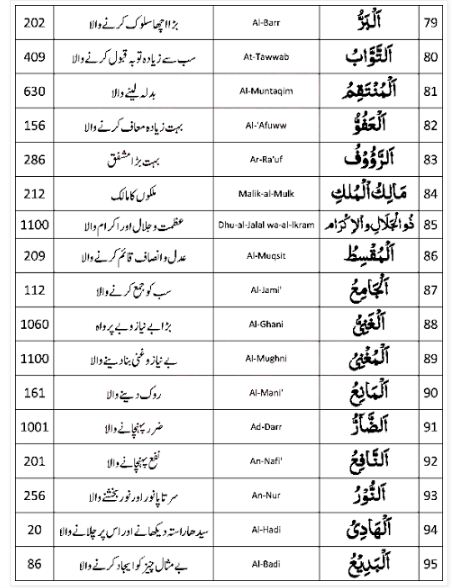 79 اَلْبَرُّ Al-Barr بڑا اچھا سلوک کرنے والا 202
80 اَلتَّوَّابُ At-Tawwab سب سے زیادہ توبہ قبول کرنے والا 409
81 اَلْمُنْتَقِمُ Al-Muntaqim بدلہ لینے والا 630
82 اَلْعَفُوُّ Al-'Afuww بہت زیادہ معاف کرنے والا 156
83 اَلرَّؤُوْفُ Ar-Ra'uf بہت بڑا مشفق 286
84 مَالِكُ الْمُلْكِ Malik-al-Mulk ملکوں کا مالک 212
85 ذُوالْجَلَالِ وَالْاِكْرَام Dhu-al-Jalal wa-al-Ikram عظمت و جلال اور اکرام والا 1100
86 اَلْمُقْسِطُ Al-Muqsit عدل و انصاف قائم کرنے والا 209
87 اَلْجَامِعُ Al-Jami' سب کو جمع کرنے والا 112
88 اَلْغَنِيُّ Al-Ghani بڑا بے نیاز و بے پرواہ 1060
89 اَلْمُغْنِيُّ Al-Mughni بے نیاز و غنی بنا دینے والا 1100
90 اَلْمَانِعُ Al-Mani' روک دینے والا 161
91 اَلضَّآرُّ Ad-Darr ضرر پہنچانے والا 1001
92 اَلنَّافِعُ An-Nafi' نفع پہنچانے والا 201
93 اَلنُّوْرُ An-Nur سر تا پا نور اور نور بخشنے والا 256
94 اَلْهَادِيُ Al-Hadi سیدھا راستہ دیکھانے اور اس پر چلانے والا 20
95 اَلْبَدِيْعُ Al-Badi بے مثال چیز کو ایجاد کرنے والا 86